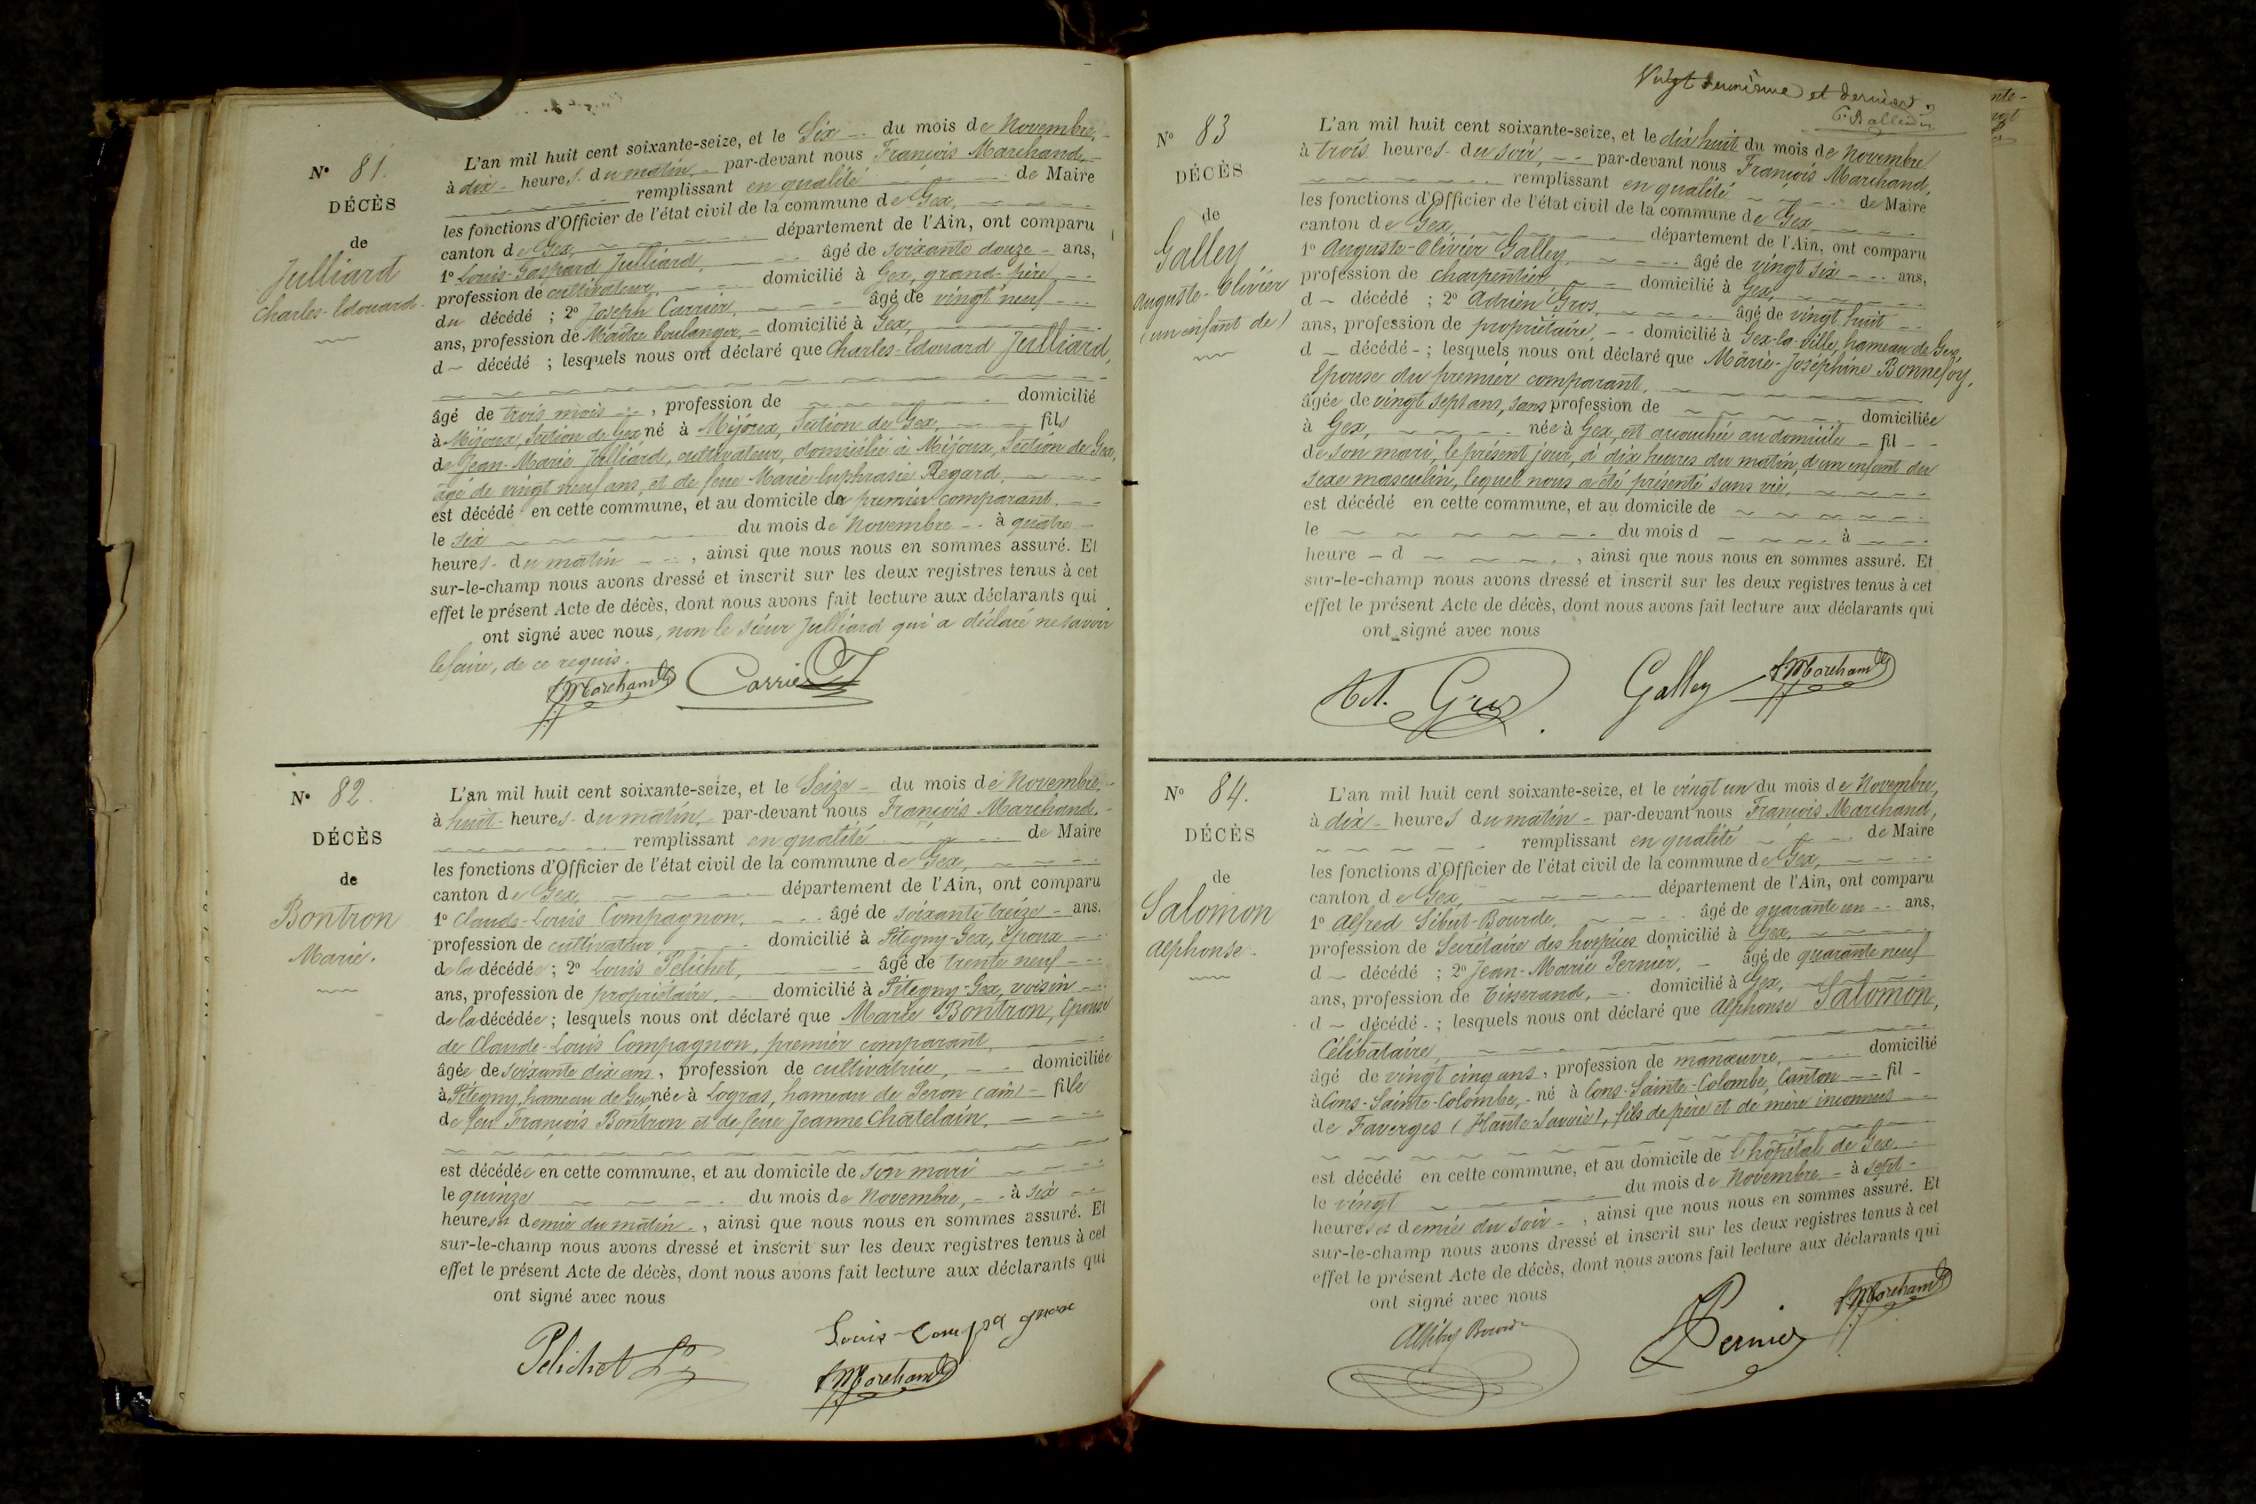 N° 81.
DÉCÈS
de
Julliard
Charles-Edouard.
L'an mil huit cent soixante-seize, et le Six du mois de Novembre,
à dix heures du matin, par-devant nous François Marchand,
remplissant en qualité de Maire
les fonctions d'Officier de l'état civil de la commune de Gex,
canton de Gex, département de l'Ain, ont comparu
1° Louis-Gaspard Julliard, âgé de soixante douze ans,
profession de cultivateur, domicilié à Gex, grand-père
du décédé ; 2° Joseph Carrier, âgé de vingt neuf
ans, profession de Maître boulanger, domicilié à Gex,
d décédé ; lesquels nous ont déclaré que Charles-Edouard Julliard,
âgé de trois mois, profession de domicilié
à Mijoux, Section de Gex né à Mijoux, Section de Gex, fils
de Jean-Marie Julliard, cultivateur, domicilié à Mijoux, Section de Gex,
âgé de vingt neuf ans, et de feue Marie-Euphrasie Regard,
est décédé en cette commune, et au domicile du premier comparant
le six du mois de Novembre à quatre
heures du matin, ainsi que nous nous en sommes assuré. Et
sur-le-champ nous avons dressé et inscrit sur les deux registres tenus à cet
effet le présent Acte de décès, dont nous avons fait lecture aux déclarants qui
ont signé avec nous, non le sieur Julliard qui a déclaré ne savoir
le faire, de ce requis.
F. Marchand Carrier
N° 82.
DÉCÈS
de
Bontron
Marie.
L'an mil huit cent soixante-seize, et le Seize du mois de Novembre,
à huit heures du matin, par-devant nous François Marchand,
remplissant en qualité de Maire
les fonctions d'Officier de l'état civil de la commune de Gex,
canton de Gex, département de l'Ain, ont comparu
1° Claude-Louis Compagnon, âgé de soixante treize ans,
profession de cultivateur domicilié à Pitegny-Gex, époux
de la décédée ; 2° Louis Pelichet, âgé de trente neuf
ans, profession de propriétaire, domicilié à Pitegny-Gex, voisin
de la décédée ; lesquels nous ont déclaré que Marie Bontron, Epouse
de Claude-Louis Compagnon, premier comparant,
âgée de soixante dix ans, profession de cultivatrice, domiciliée
à Pitegny, hameau de Gex née à Logras, hameau de Peron (ain) fille
de feu François Bontron et de feue Jeanne Chatelain,
est décédée en cette commune, et au domicile de son mari
le quinze du mois de Novembre, à six
heures et demie du matin, ainsi que nous nous en sommes assuré. Et
sur-le-champ nous avons dressé et inscrit sur les deux registres tenus à cet
effet le présent Acte de décès, dont nous avons fait lecture aux déclarants qui
ont signé avec nous
Pelichet Ls Louis-Compagnon
F. Marchand
Vingt deuxième et dernier
N° 83
DÉCÈS
de
Galley
Auguste-Olivier
(un enfant de)
L'an mil huit cent soixante-seize, et le dix huit du mois de Novembre
à trois heures du soir, par-devant nous François Marchand,
remplissant en qualité de Maire
les fonctions d'Officier de l'état civil de la commune de Gex,
canton de Gex, département de l'Ain, ont comparu
1° Auguste-Olivier Galley, âgé de vingt six ans,
profession de charpentier, domicilié à Gex,
d décédé ; 2° Adrien Gros, âgé de vingt huit
ans, profession de propriétaire, domicilié à Gex-la-ville, hameau de Gex,
d décédé ; lesquels nous ont déclaré que Marie-Joséphine Bonnefoy,
Epouse du premier comparant,
âgée de vingt sept ans, sans profession de domiciliée
à Gex, née à Gex, est accouchée au domicile fil
de son mari, le présent jour, à dix heures du matin, d'un enfant du
sexe masculin, lequel nous a été présenté sans vie,
est décédé en cette commune, et au domicile de
le du mois d à
heure d, ainsi que nous nous en sommes assuré. Et
sur-le-champ nous avons dressé et inscrit sur les deux registres tenus à cet
effet le présent Acte de décès, dont nous avons fait lecture aux déclarants qui
ont signé avec nous
Gros Galley F. Marchand
N° 84.
DÉCÈS
de
Salomon
Alphonse.
L'an mil huit cent soixante-seize, et le vingt un du mois de Novembre,
à dix heures du matin par-devant nous François Marchand,
remplissant en qualité de Maire
les fonctions d'Officier de l'état civil de la commune de Gex,
canton de Gex, département de l'Ain, ont comparu
1° Alfred Sibut-Bourde, âgé de quarante un ans,
profession de Secrétaire des hospices domicilié à Gex,
d décédé ; 2° Jean-Marie Pernier, âgé de quarante neuf
ans, profession de Tisserand, domicilié à Gex,
d décédé ; lesquels nous ont déclaré que Alphonse Salomon,
Célibataire,
âgé de vingt cinq ans, profession de manœuvre, domicilié
à Cons-Sainte-Colombe, né à Cons-Sainte-Colombe, Canton fil
de Faverges (Haute Savoie), fils de père et de mère inconnus
est décédé en cette commune, et au domicile de l'hôpital de Gex
le vingt du mois de Novembre à sept
heures et demie du soir, ainsi que nous nous en sommes assuré. Et
sur-le-champ nous avons dressé et inscrit sur les deux registres tenus à cet
effet le présent Acte de décès, dont nous avons fait lecture aux déclarants qui
ont signé avec nous
Pernier F. Marchand